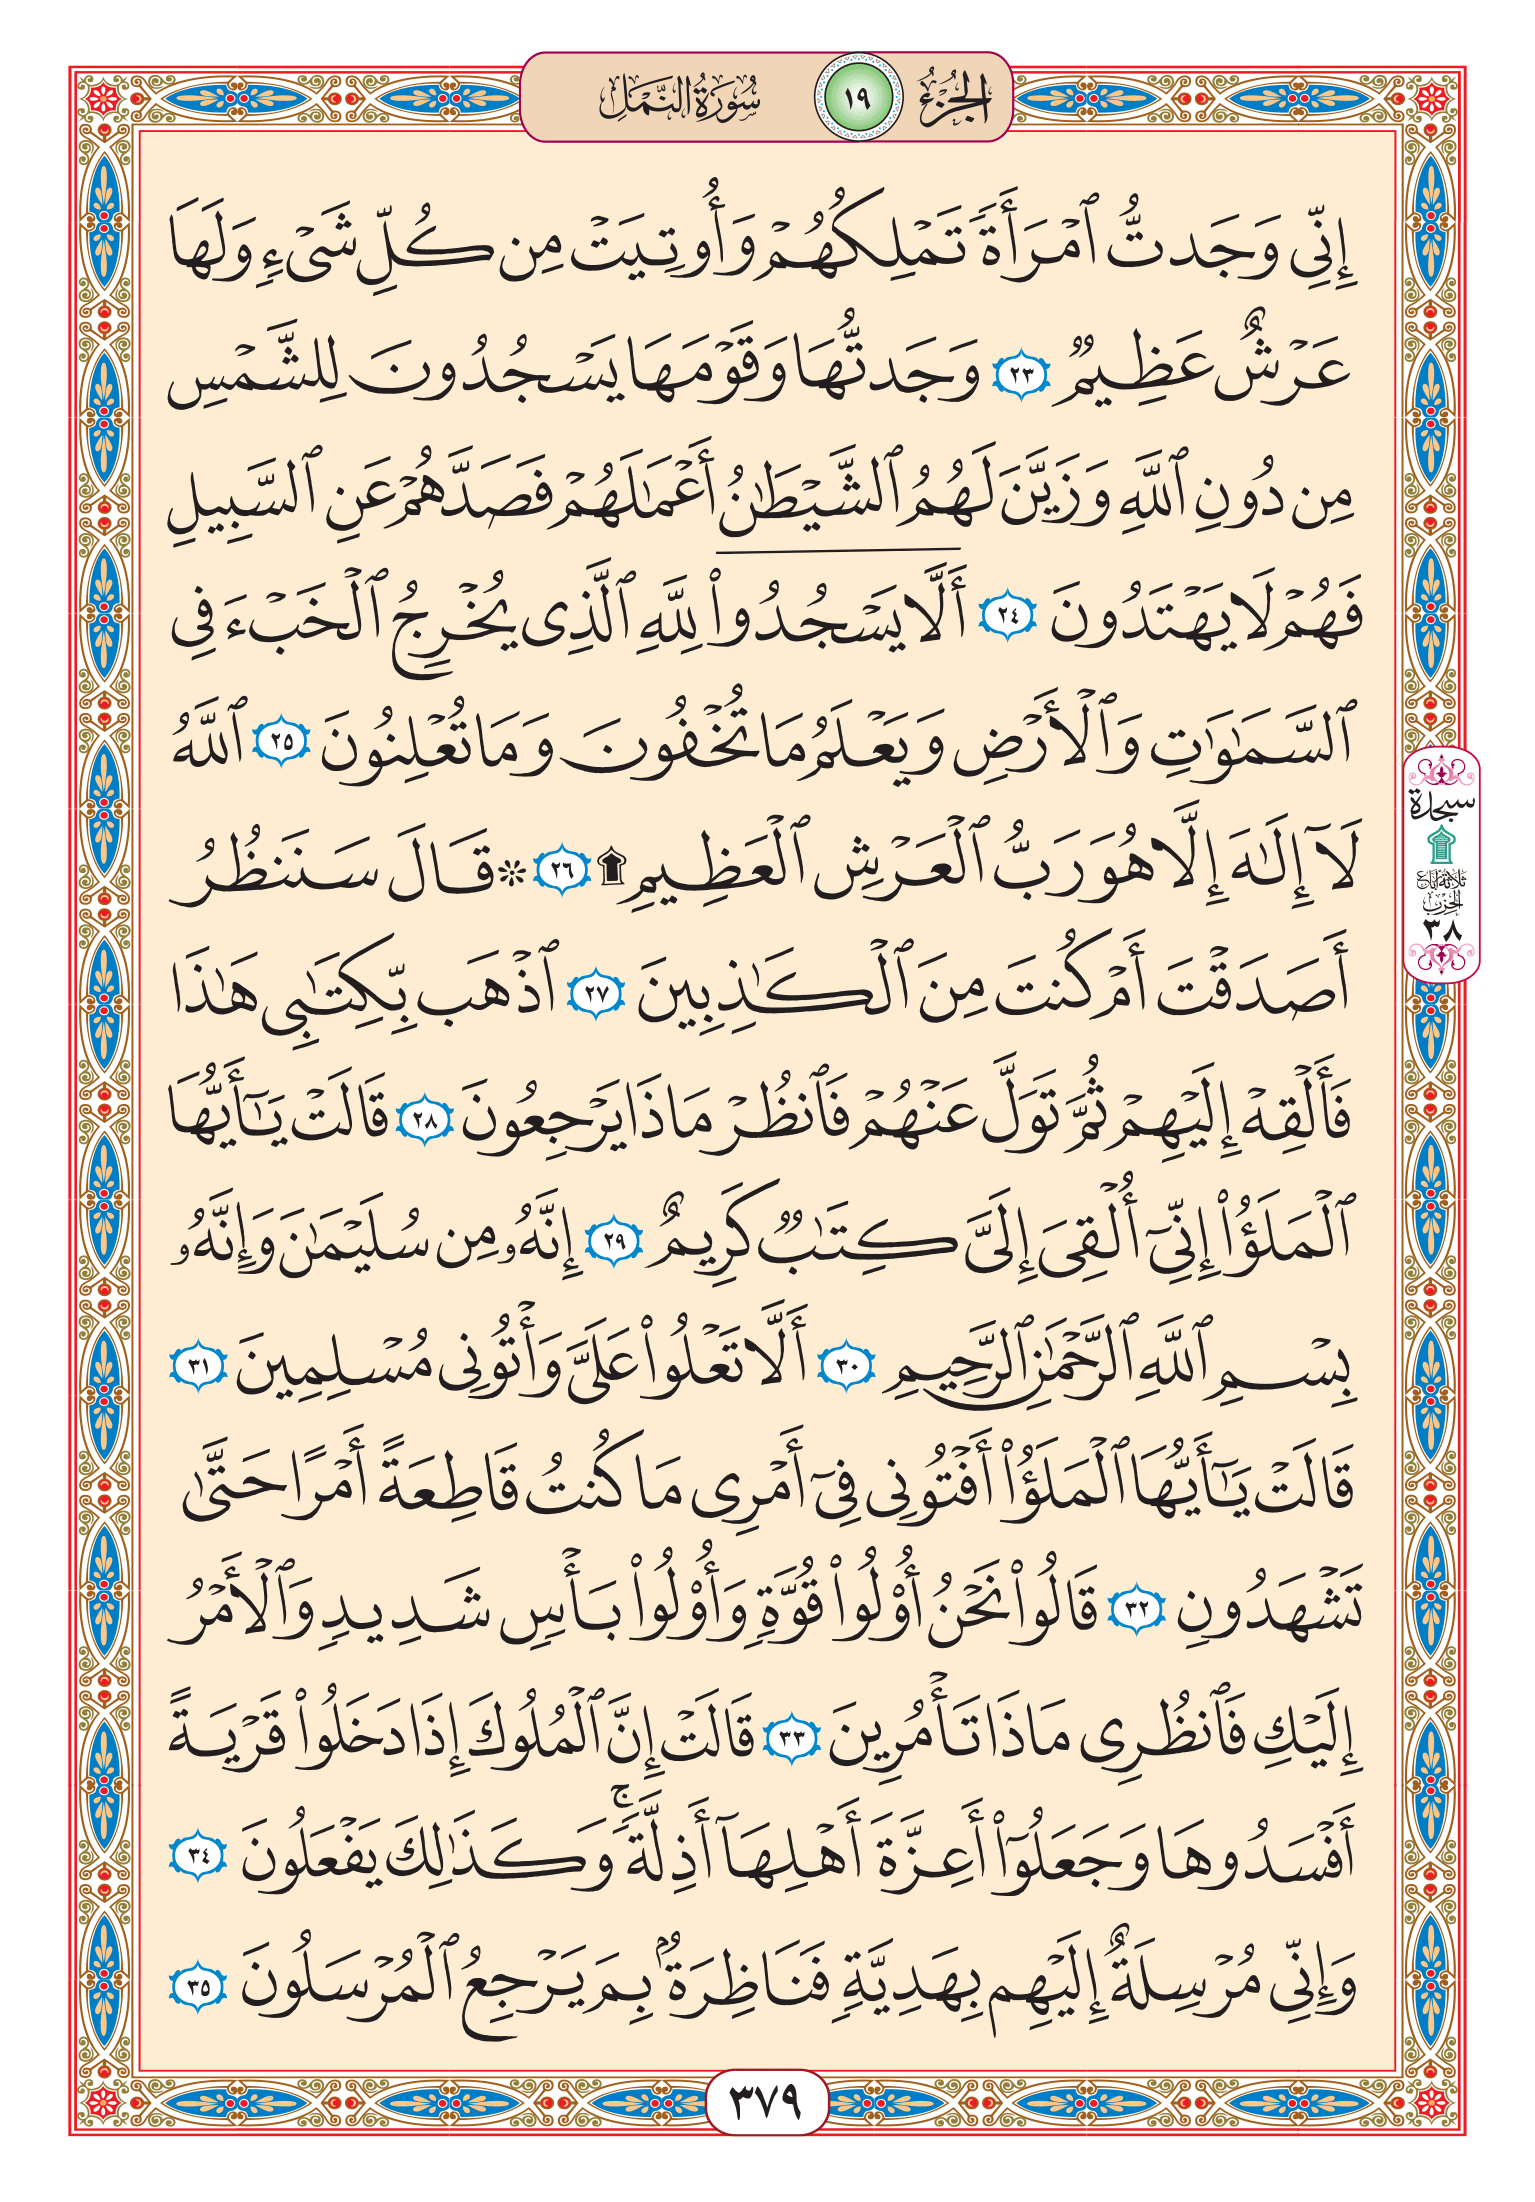 الجزء ١٩ سورة النمل
إِنِّي وَجَدتُّ ٱمۡرَأَةٗ تَمۡلِكُهُمۡ وَأُوتِيَتۡ مِن كُلِّ شَيۡءٖ وَلَهَا
عَرۡشٌ عَظِيمٞ ٢٣ وَجَدتُّهَا وَقَوۡمَهَا يَسۡجُدُونَ لِلشَّمۡسِ
مِن دُونِ ٱللَّهِ وَزَيَّنَ لَهُمُ ٱلشَّيۡطَٰنُ أَعۡمَٰلَهُمۡ فَصَدَّهُمۡ عَنِ ٱلسَّبِيلِ
فَهُمۡ لَا يَهۡتَدُونَ ٢٤ أَلَّا يَسۡجُدُواْ لِلَّهِ ٱلَّذِي يُخۡرِجُ ٱلۡخَبۡءَ فِي
ٱلسَّمَٰوَٰتِ وَٱلۡأَرۡضِ وَيَعۡلَمُ مَا تُخۡفُونَ وَمَا تُعۡلِنُونَ ٢٥ ٱللَّهُ
لَآ إِلَٰهَ إِلَّا هُوَ رَبُّ ٱلۡعَرۡشِ ٱلۡعَظِيمِ ۩ ٢٦ ۞ قَالَ سَنَنظُرُ
أَصَدَقۡتَ أَمۡ كُنتَ مِنَ ٱلۡكَٰذِبِينَ ٢٧ ٱذۡهَب بِّكِتَٰبِي هَٰذَا
فَأَلۡقِهۡ إِلَيۡهِمۡ ثُمَّ تَوَلَّ عَنۡهُمۡ فَٱنظُرۡ مَاذَا يَرۡجِعُونَ ٢٨ قَالَتۡ يَٰٓأَيُّهَا
ٱلۡمَلَؤُاْ إِنِّيٓ أُلۡقِيَ إِلَيَّ كِتَٰبٞ كَرِيمٌ ٢٩ إِنَّهُۥ مِن سُلَيۡمَٰنَ وَإِنَّهُۥ
بِسۡمِ ٱللَّهِ ٱلرَّحۡمَٰنِ ٱلرَّحِيمِ ٣٠ أَلَّا تَعۡلُواْ عَلَيَّ وَأۡتُونِي مُسۡلِمِينَ ٣١
قَالَتۡ يَٰٓأَيُّهَا ٱلۡمَلَؤُاْ أَفۡتُونِي فِيٓ أَمۡرِي مَا كُنتُ قَاطِعَةً أَمۡرًا حَتَّىٰ
تَشۡهَدُونِ ٣٢ قَالُواْ نَحۡنُ أُوْلُواْ قُوَّةٖ وَأُوْلُواْ بَأۡسٖ شَدِيدٖ وَٱلۡأَمۡرُ
إِلَيۡكِ فَٱنظُرِي مَاذَا تَأۡمُرِينَ ٣٣ قَالَتۡ إِنَّ ٱلۡمُلُوكَ إِذَا دَخَلُواْ قَرۡيَةً
أَفۡسَدُوهَا وَجَعَلُوٓاْ أَعِزَّةَ أَهۡلِهَآ أَذِلَّةٗۚ وَكَذَٰلِكَ يَفۡعَلُونَ ٣٤
وَإِنِّي مُرۡسِلَةٌ إِلَيۡهِم بِهَدِيَّةٖ فَنَاظِرَةُۢ بِمَ يَرۡجِعُ ٱلۡمُرۡسَلُونَ ٣٥
سجدة
ثلاثة أرباع
الحزب
٣٨
٣٧٩